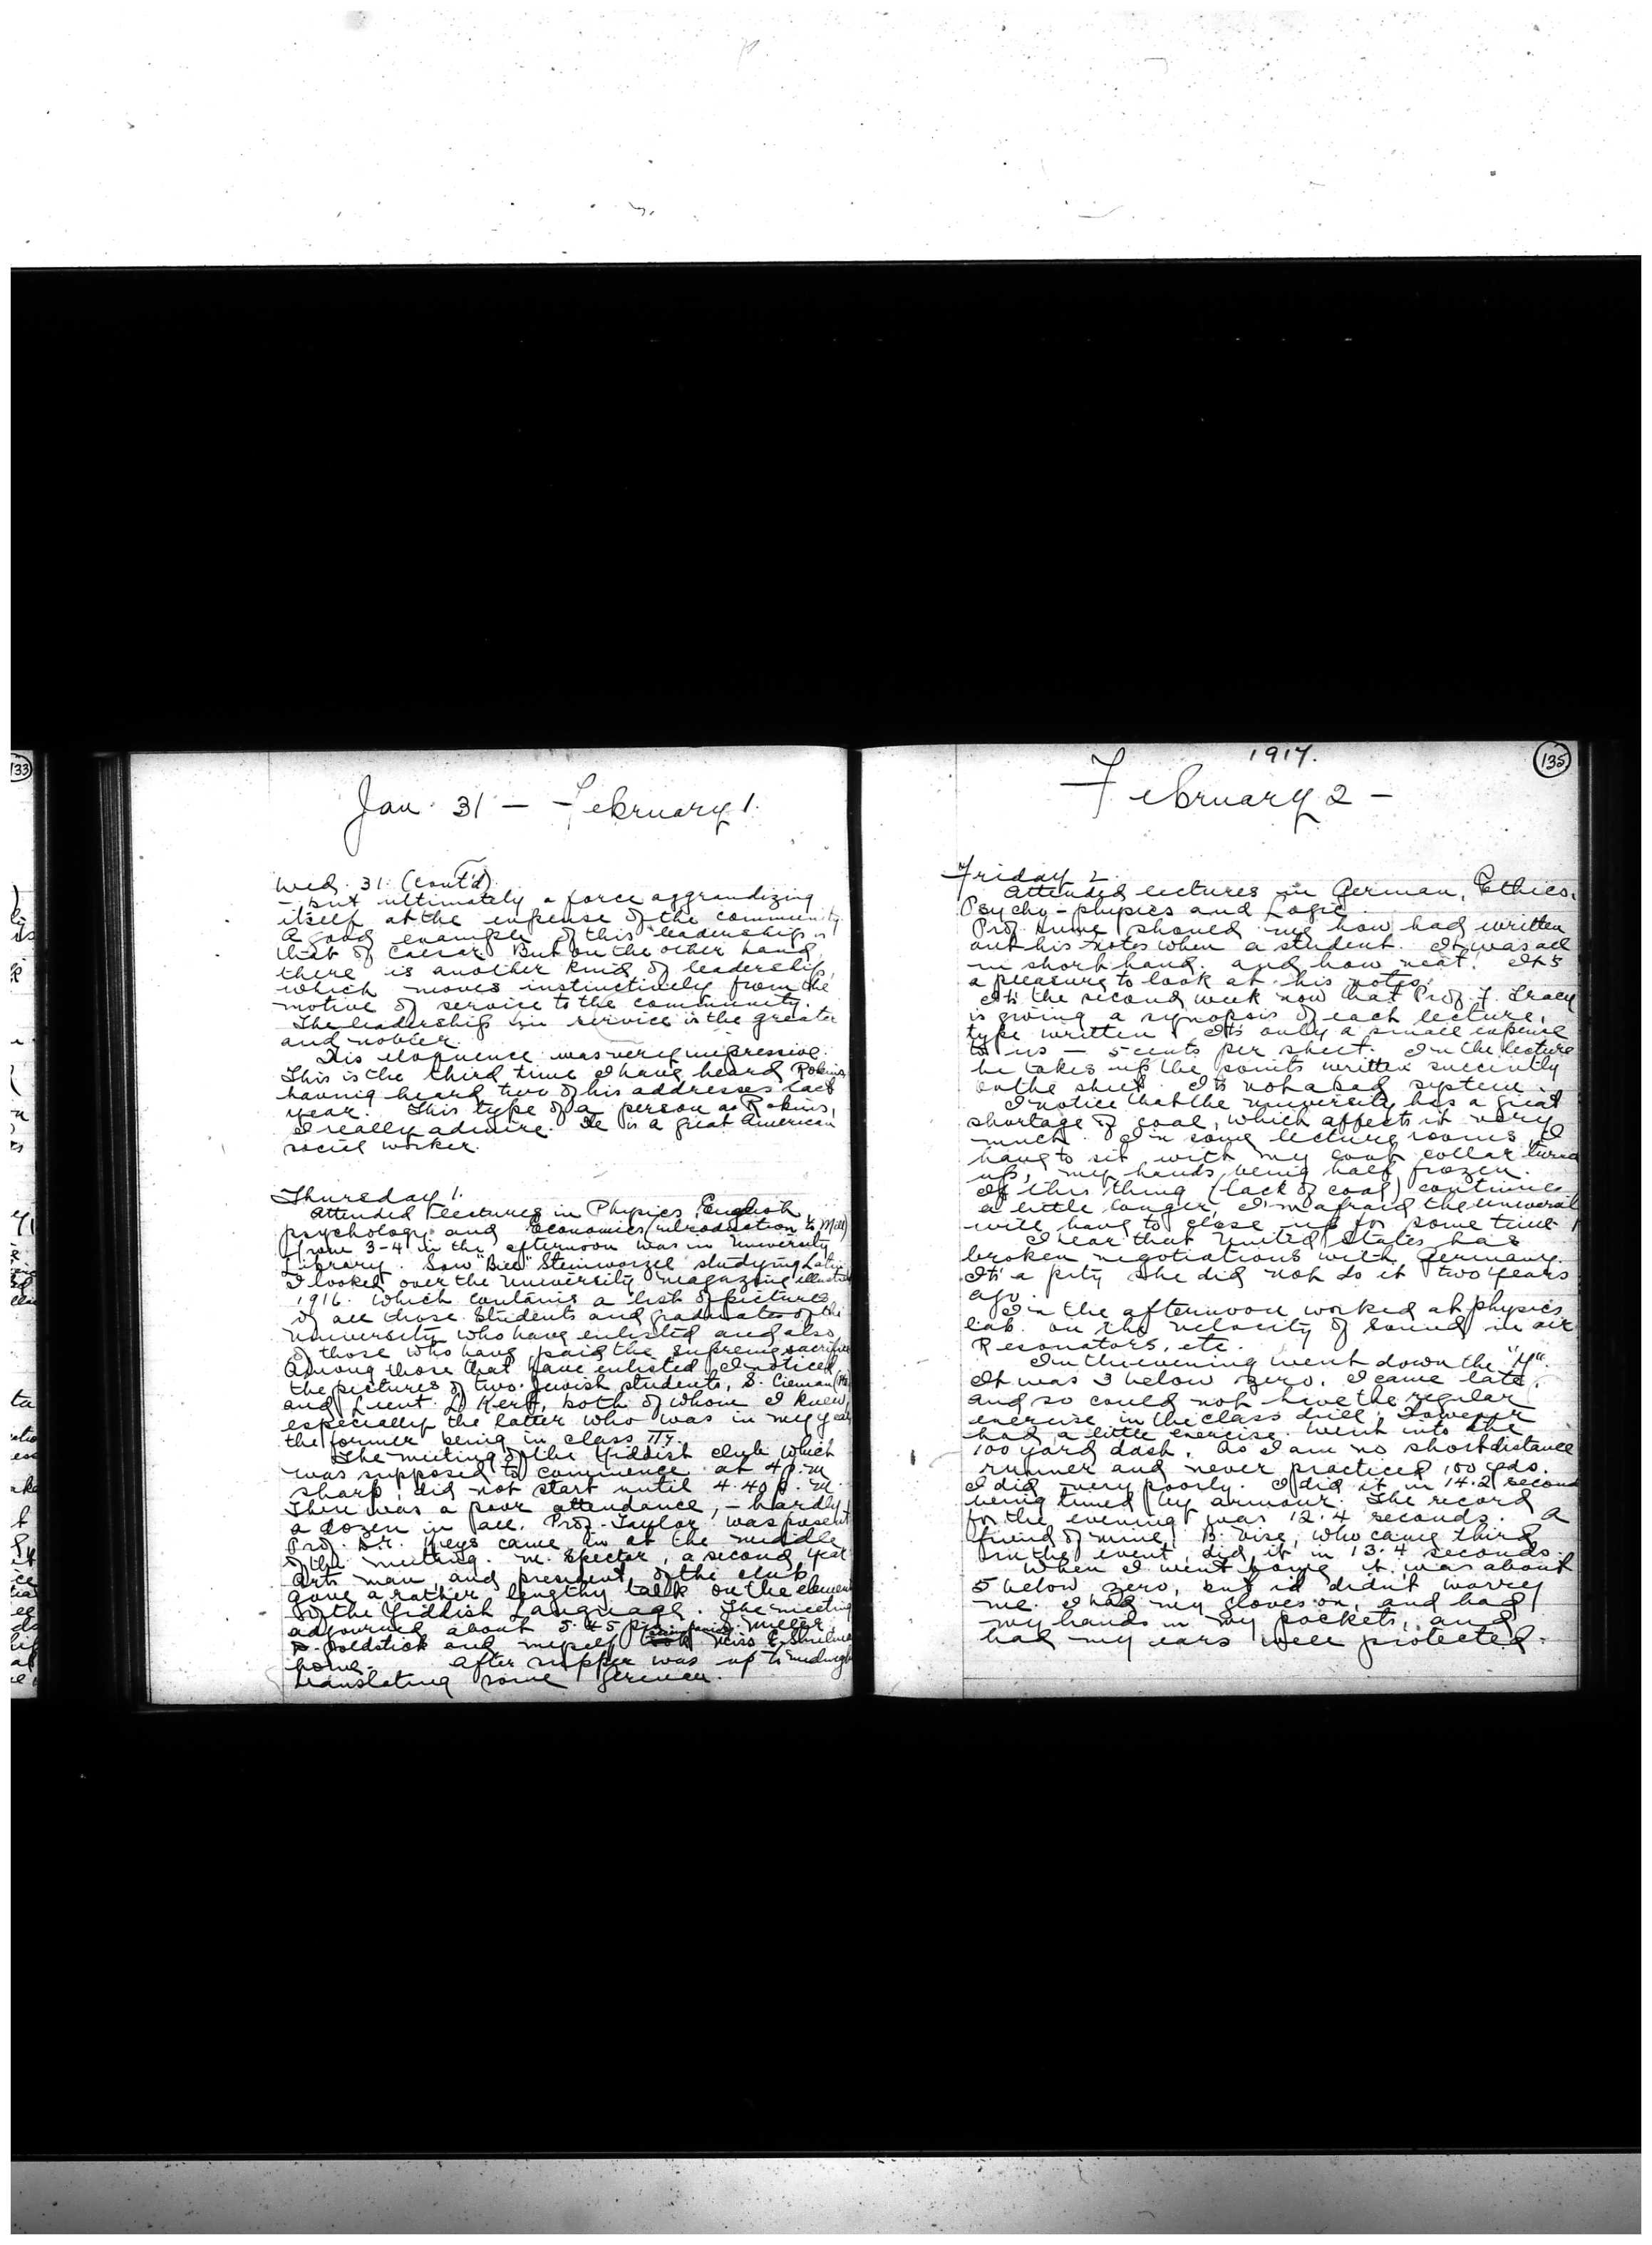 Jan. 31 — February 1.
Wed. 31. (cont'd)
— but ultimately a force aggrandizing
itself at the expense of the community
A good example of this leadership is
that of Caesar. But on the other hand
there is another kind of leadership,
which moves instinctively from the
motive of service to the community.
The leadership in service is the greater
and nobler.
His eloquence was very impressive.
This is the third time I have heard Robins
having heard two of his addresses last
year. This type of a person as Robins,
I really admire. He is a great American
social worker.
Thursday 1.
Attended lectures in Physics, English
psychology and Economics (introduction to Mill)
From 3-4 in the afternoon was in University
Library. Saw "Bill" Steinwortzel studying Latin
I looked over the University magazine
1916. which contains a list of pictures
of all those students and graduates of the
University who have enlisted and also
of those who have paid the supreme sacrifice
Among those that have enlisted I noticed
the pictures of two Jewish students, S. Cieman
and Lieut. Kert, both of whom I knew,
especially the latter who was in my year
the former being in class
The meeting of the Yiddish club which
was supposed to commence at 4 p.m
sharp, did not start until 4.40 p.m.
There was a poor attendance, - hardly
a dozen in all. Prof. Taylor was present
Prof. Dr. Keys came in at the middle
of the meeting. M. Spector, a second year
arts man and president of the club
gave a rather lengthy talk on the element
of the Yiddish Language. The meeting
adjourned about 5.45 p.m. Miller
Goldstick and myself Miss E. Shulman
home. After supper was up to midnight
translating some German.
1917.
135
February 2 —
Friday 2.
Attended lectures in German, Ethics,
Psycho-physics and Logic.
Prof. Hume showed me how had written
out his notes when a student. It was all
in shorthand. and how neat. It's
a pleasure to look at his notes.
It's the second week now that Prof. F. Tracy
is giving a synopsis of each lecture,
type written. It's only a small expense
to us — 5 cents per sheet. In the lecture
he takes up the points written succinctly
on the sheet. It's not a bad system.
I notice that the university has a great
shortage of coal, which affects it very
much. In some lecture rooms I
have to sit with my coat collar turned
up, my hands being half frozen.
If this thing (lack of coal) continues
a little longer, I'm afraid the universit
will have to close up for some time.
I hear that United States has
broken negotiations with Germany.
It's a pity she did not do it two years
ago.
In the afternoon worked at physics
lab. on the velocity of sound in air
Resonators, etc.
In the evening went down the "Y".
It was 3 below zero. I came late,
and so could not have the regular
exercise in the class drill; However
had a little exercise. Went into the
100 yard dash. As I am no short distance
runner and never practiced 100 yds.
I did very poorly. I did it in 14.2 second
being timed by Armour. The record
for the evening was 12.4 seconds. A
friend of mine, B. Vise, who came third
in the event, did it in 13.4 seconds.
When I went home it was about
5 below zero, but it didn't worry
me. I had my gloves on, and had
my hands in my pockets, and
had my ears well protected.